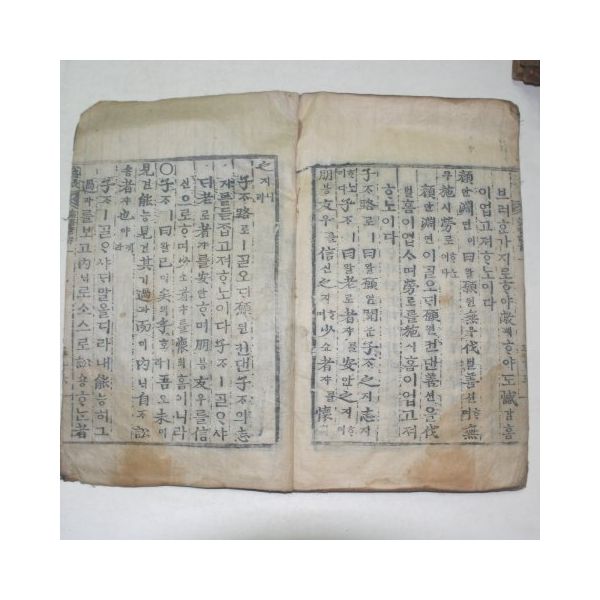 브러ᄒᆞᆫ가지로ᄒᆞ야敝폐ᄒᆞ야도憾감홈
이업고져ᄒᆞ노이다
顔안淵연이曰왈願원無무伐벌善션ᄒᆞ며無
무施시勞로ᄒᆞ노이다
顔안淵연이ᄀᆞᆯ오ᄃᆡ願원컨댄善션을伐
벌홈이업ᄉᆞ며勞로를施시홈이업고져
ᄒᆞ노이다
子ᄌᆞ路로ㅣ曰왈願원聞문子ᄌᆞ之지志지
ᄒᆞ노이다子ᄌᆞㅣ曰왈老로者쟈를安안之지ᄒᆞ며
朋붕友우를信신之지ᄒᆞ며少쇼者쟈를懷
之지니라
子ᄌᆞ路로ㅣᄀᆞᆯ오ᄃᆡ願원컨댄子ᄌᆞ의志
지를듣ᄌᆞᆸ고져ᄒᆞ노이다子ᄌᆞㅣᄀᆞᆯᄋᆞ샤
ᄃᆡ老로者쟈를安안ᄒᆞ며朋붕友우를信
신으로ᄒᆞ며少쇼者쟈를懷회홈이니라
○子ᄌᆞㅣ曰왈已이矣의乎호ㅣ라吾오未미
見견能능見견其기過과而이內ᄂᆡ自ᄌᆞ訟
숑者쟈也야케라
子ᄌᆞㅣᄀᆞᆯᄋᆞ샤ᄃᆡ말을디라내能능히그
過과를보고內ᄂᆡ로스스로訟숑ᄒᆞᄂᆞᆫ者